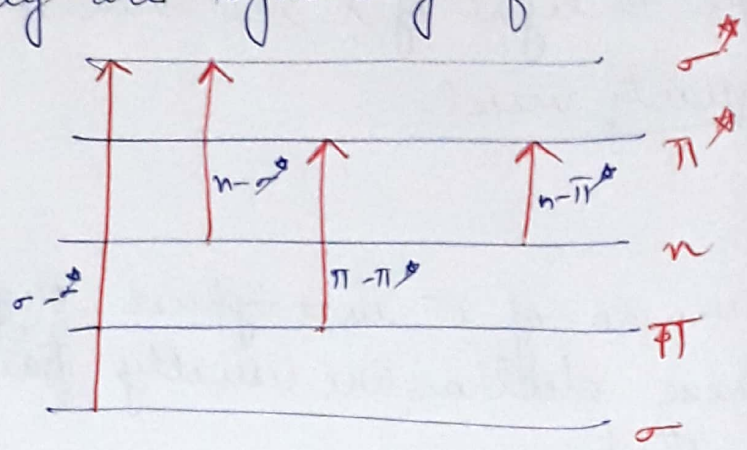 σ*
π*
n-σ*
n-π*
n
σ-σ*
π-π*
π
σ